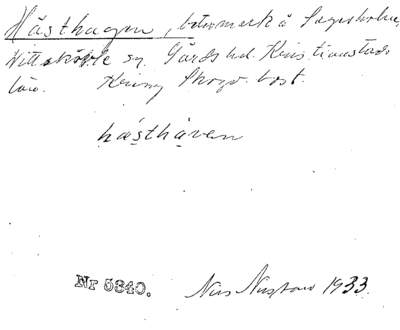 Hästhagen, betesmark å Segesholm,
Vittskövle sn. Gärds hd. Kristianstads
län. Henry Skogv. bost.
hästhaven
Nr 5840. 1933.